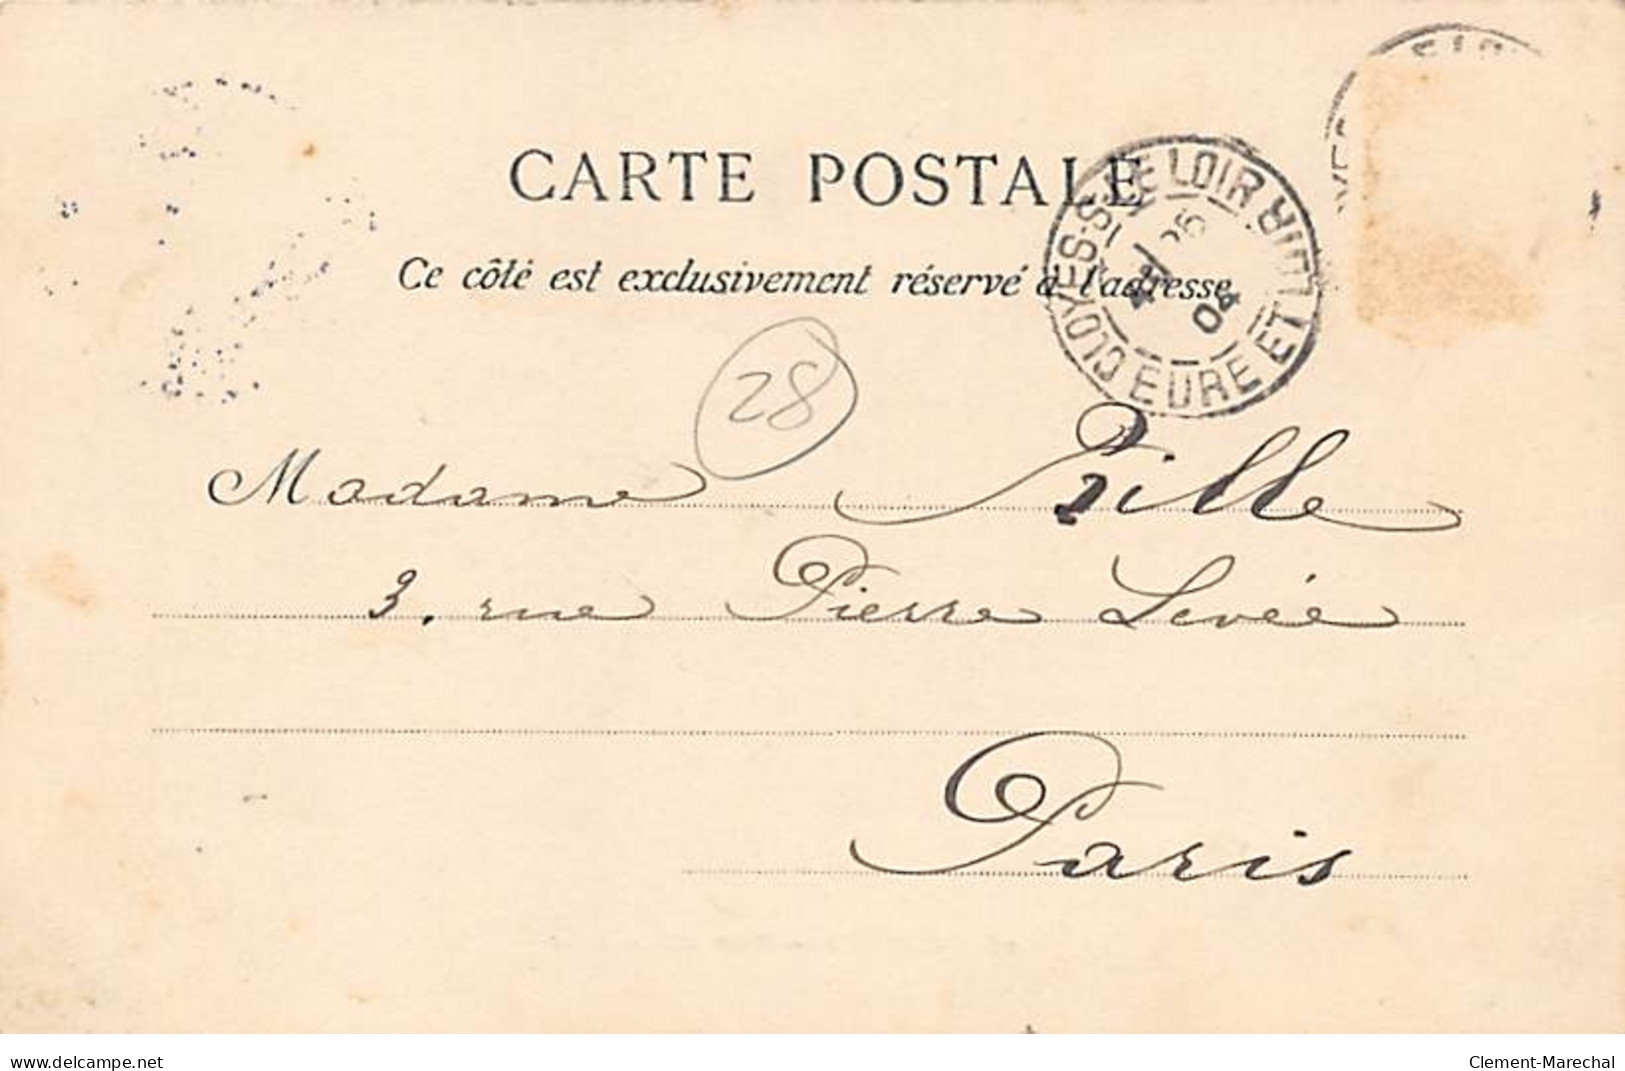 CARTE POSTALE
Ce côté est exclusivement réservé à l'adresse
CLOYES-S-LE LOIR
EURE ET LOIR
04
28
Madame Pille
3, rue Pierre Levée
Paris
www.delcampe.net
Clement-Marechal